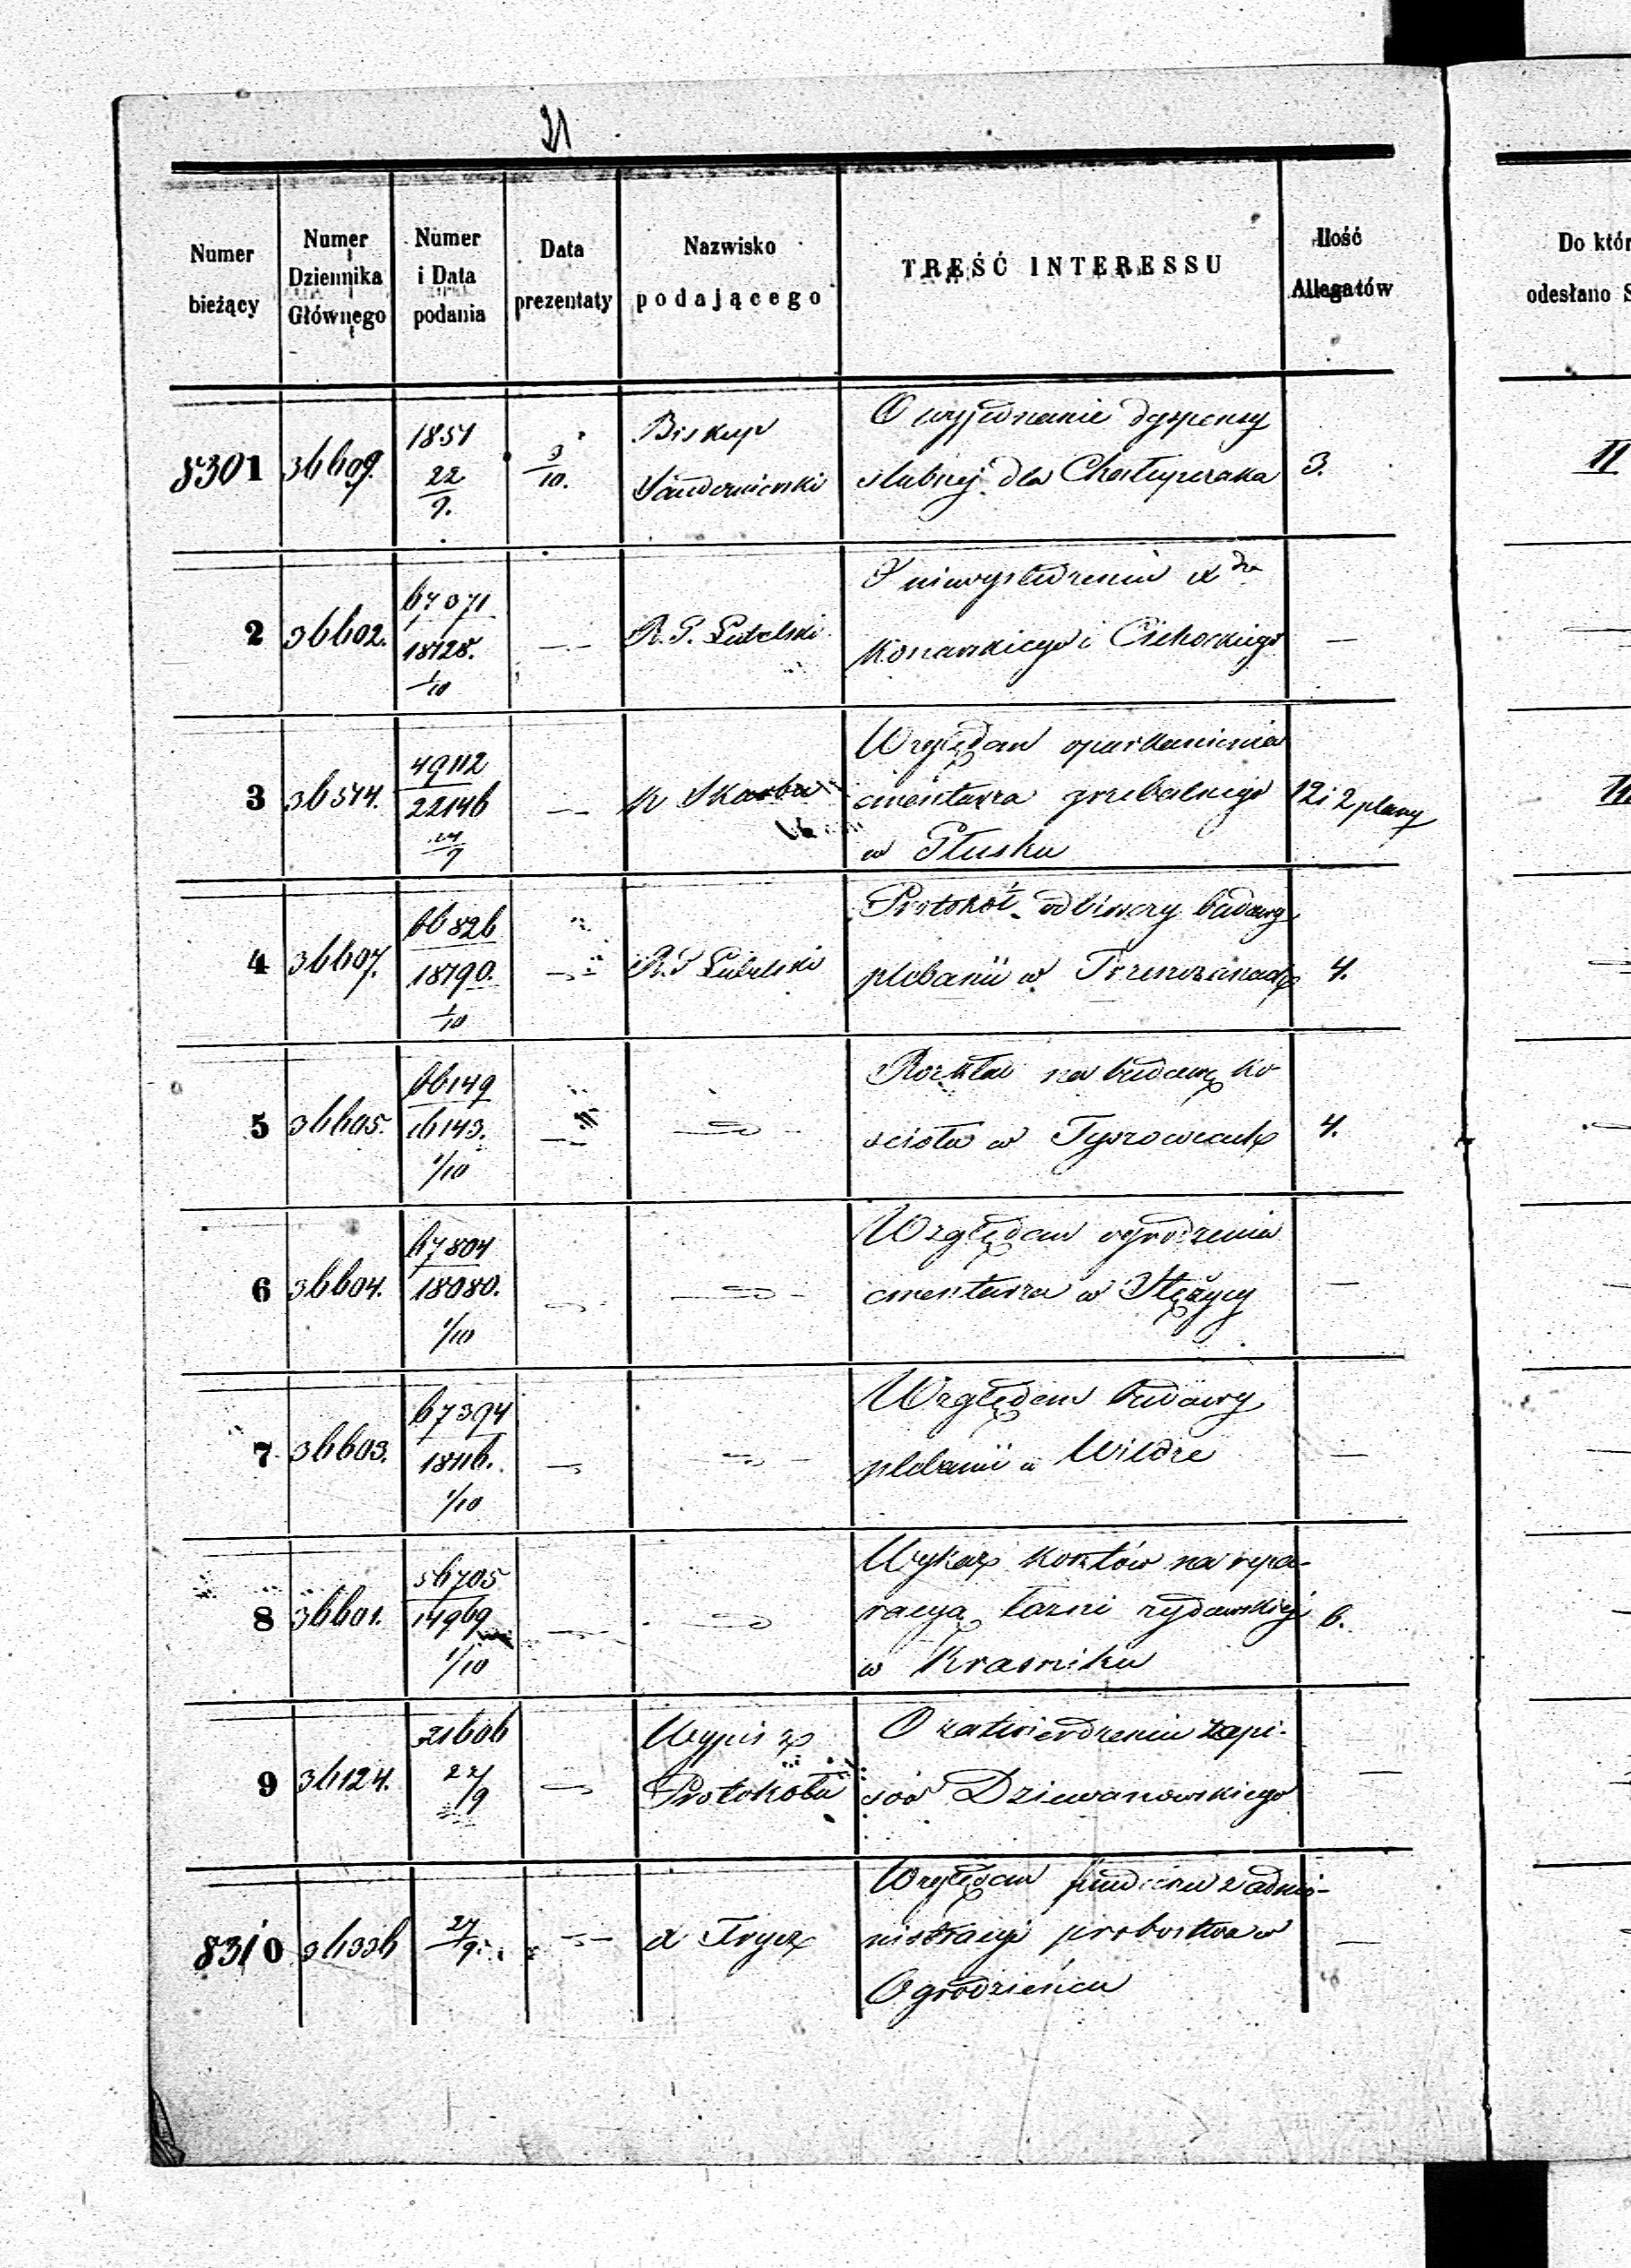 21
Numer bieżący
Numer Dziennika Głównego
Numer i Data podania
Data prezentaty
Nazwisko podającego
TREŚĆ INTERESSU
Ilość Allegatów
Do któr
odesłano S
8301 36609. 1851 22/9. 3/10. Biskup O wyjednanie dyspensy
Sandomierski slubnej dla 3. II
2 36602. 67371 18128. 1/10 — R. G. Lubelski O niewysledzeniu X
Konarskiego i Cichockiego —
3 36574. 49112 22146 /9 — K Skarbu Względem oparkanienia
cmentarza grzebalnego 12 i 2 plany
w Głusku
4 36607. 66826 18190. 1/10 — R. G Lubelski Protokół odbiorczy budowy
plebanii w 4.
5 36605. 66149 16143. 1/10 — — Rozkład na budowę ko-
scioła w Tyszowcach 4.
6 36604. 67804 18080. 1/10 — — Względem ogrodzenia
cmentarza w Stężycy —
7 36603. 67394 18116. 1/10 — — Względem budowy
plebanii w Wildze —
8 36601. 56705 14969 1/10 — — Wykaz kosztów na repa-
racyą łazni zydowskiej 6.
w Krasniku
9 36124. 21606 22/9 — Wypis z O zatwierdzeniu zapi-
Protokołu sów Dziewanowskiego —
8310 36336 27/9. — X Trycz Względem z admi-
nistracyi probostwa w —
Ogrodzieńcu